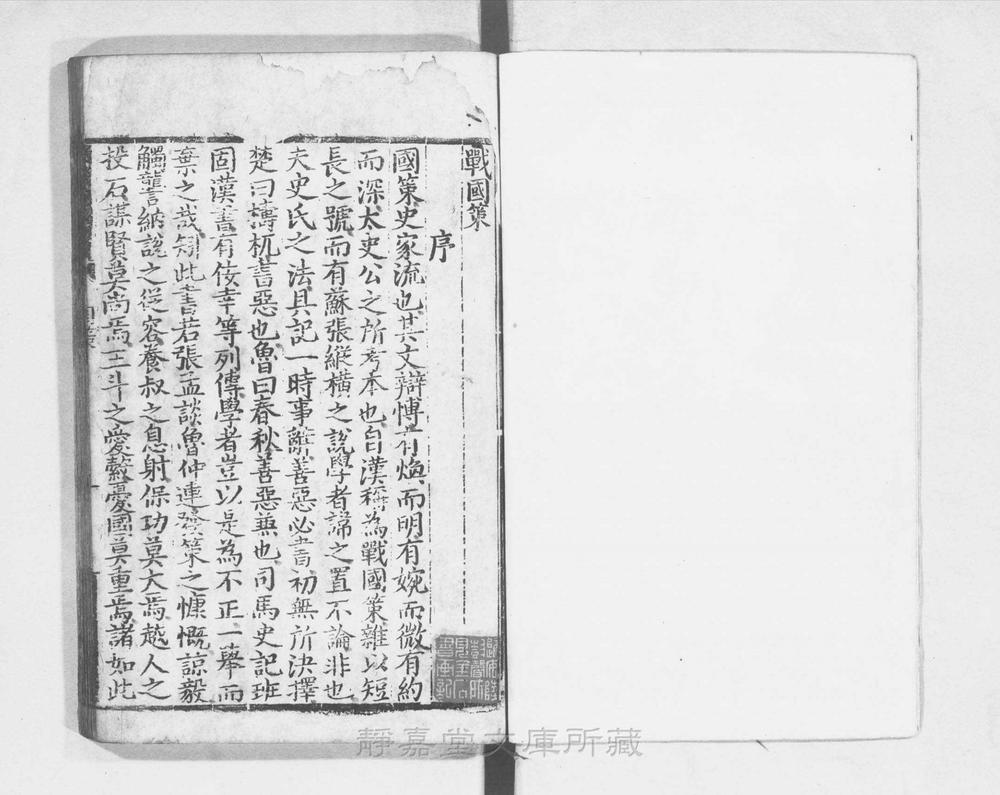 戰國策
序
國策史家流也其文辯愽有煥而明有婉而微有約
而深太史公之所考本也自漢稱為戰國策雜以短
長之號而有蘇張縱橫之說學者諱之置不論非也
夫史氏之法具記一時事辭善惡必書初無所決擇
楚曰擣杌書惡也魯曰春秋善惡兼也司馬史記班
固漢書有佞幸等列傳學者豈以是為不正一舉而
棄之哉矧此書若張孟談魯仲連發策之慷慨諒毅
觸讋納說之從容養叔之息射保功莫大焉越人之
投石謀賢莫尚焉王斗之愛縠憂國莫重焉諸如此
靜嘉堂文庫所藏